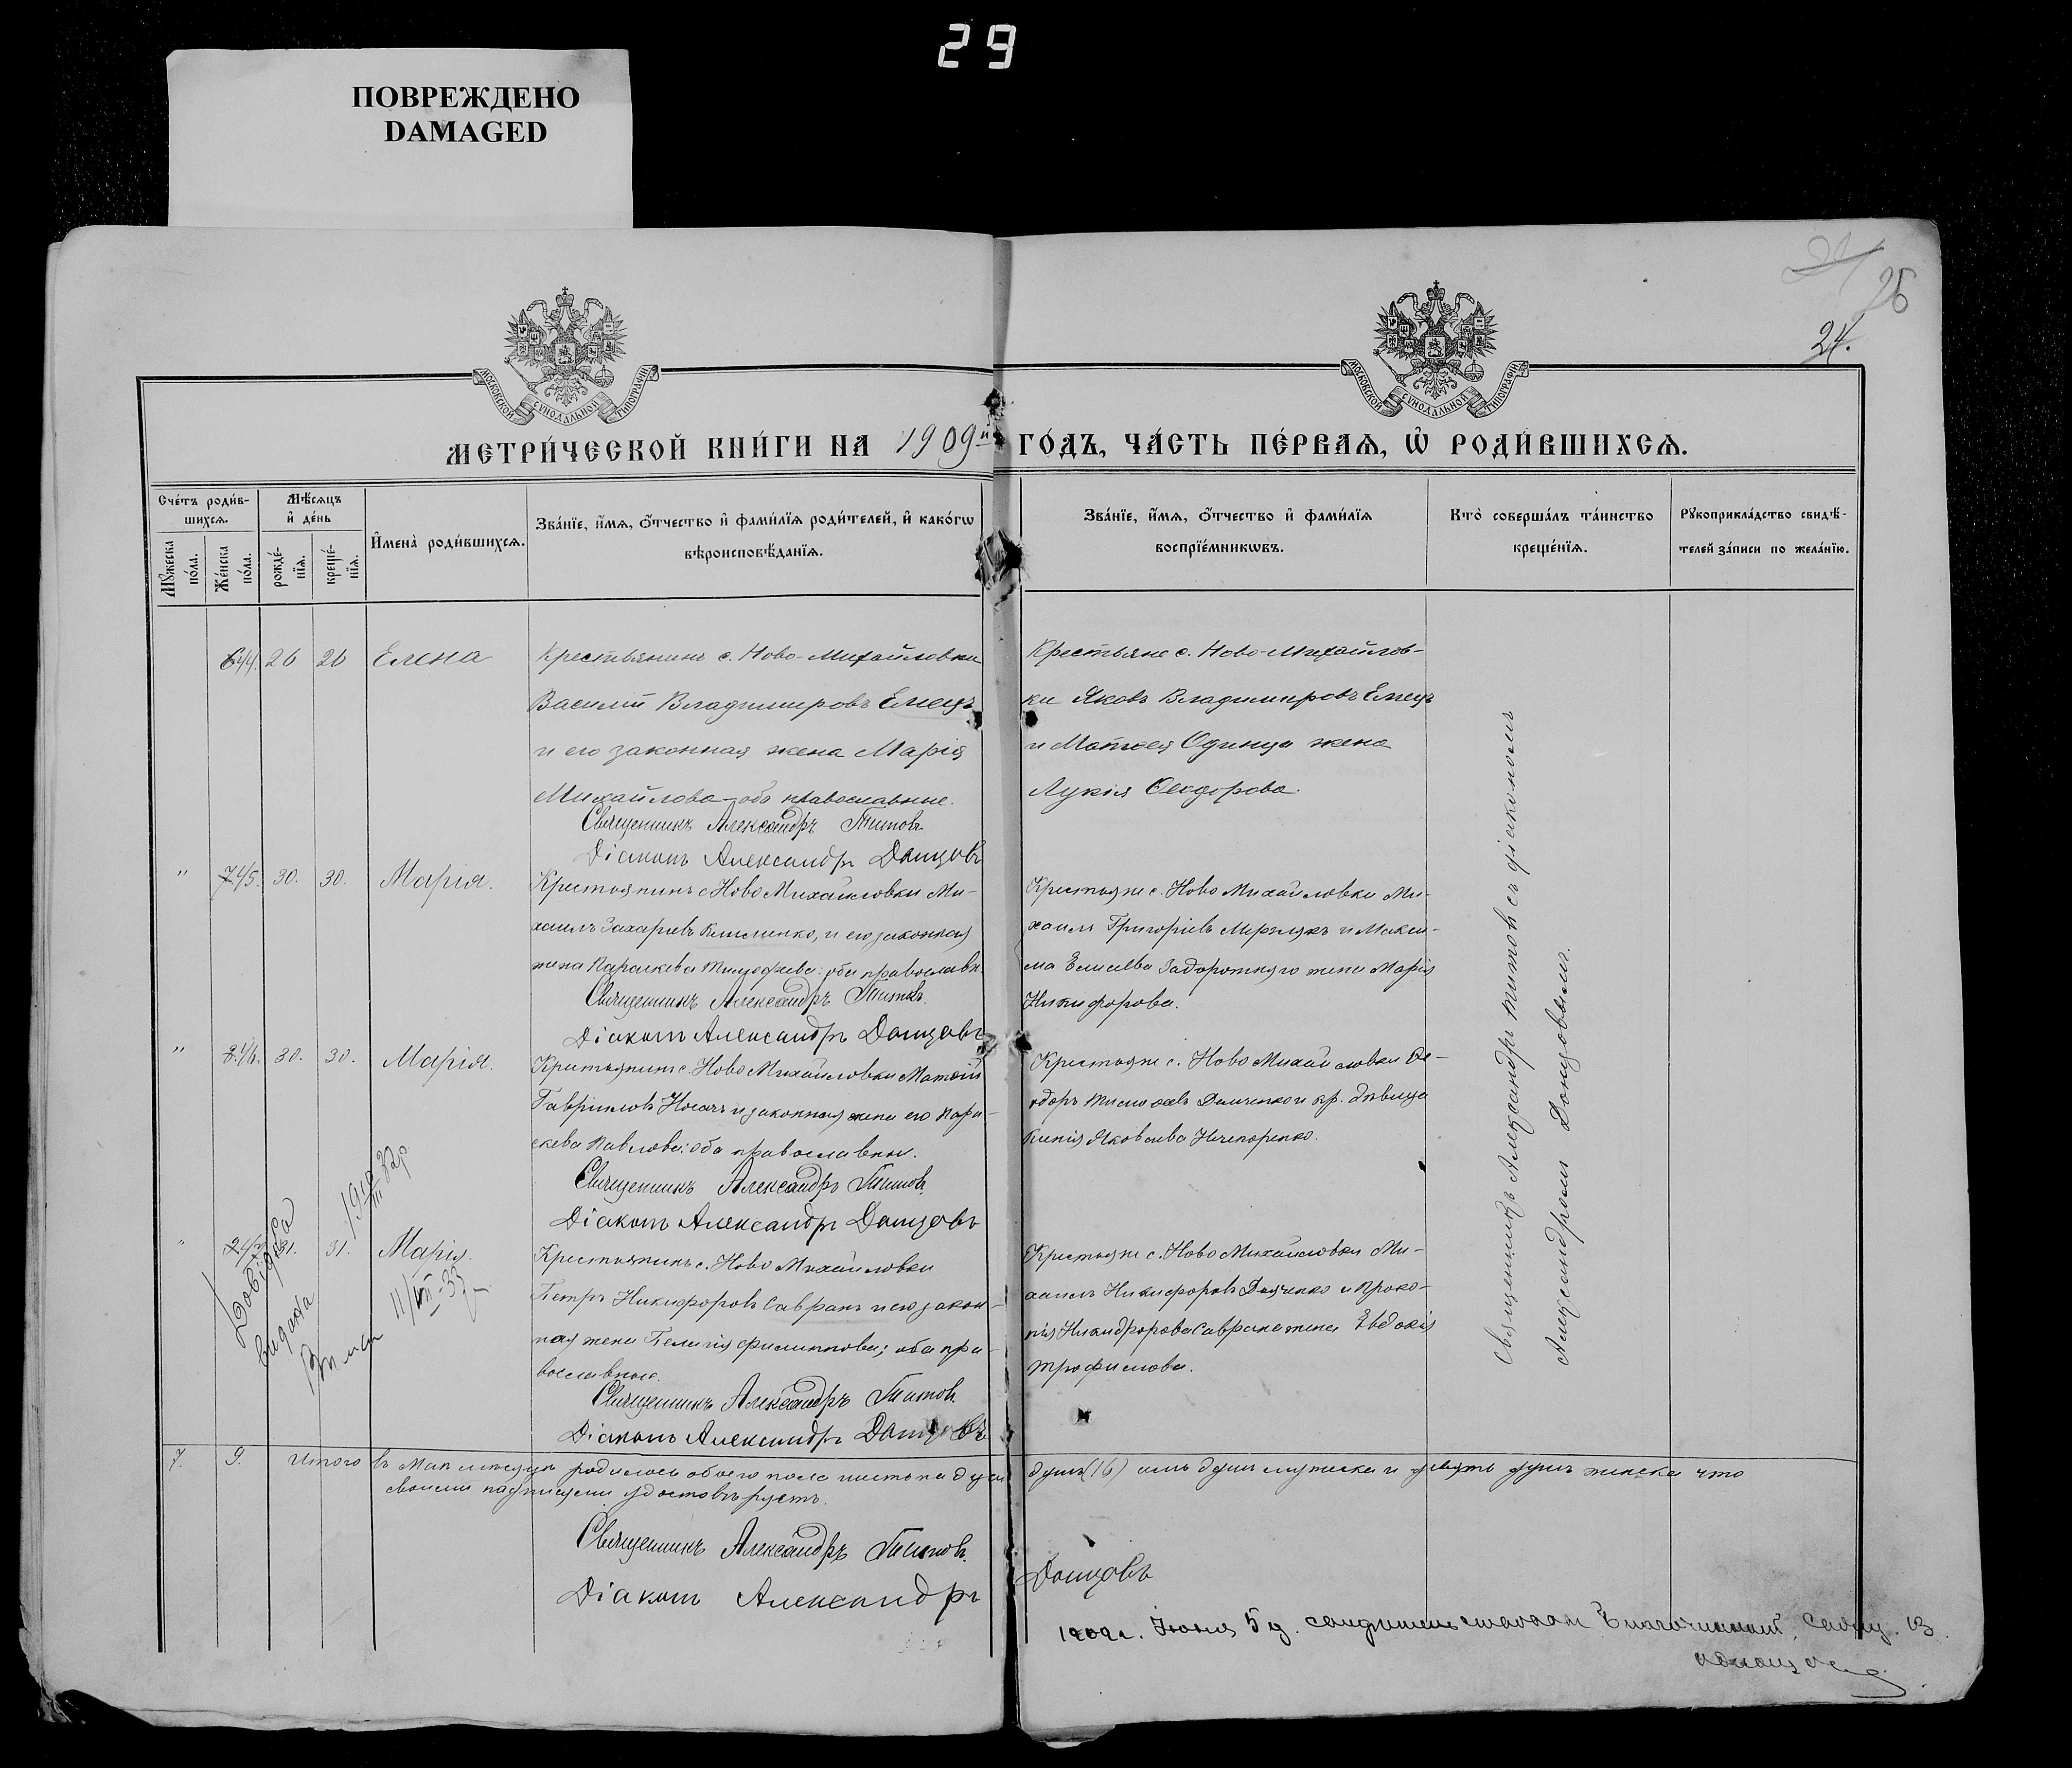 29
ПОВРЕЖДЕНО
DAMAGED
25
24.
МОСКОВСКОЙ СУНОДАЛЬНОЙ ТИПОГРАФІИ
МОСКОВСКОЙ СУНОДАЛЬНОЙ ТИПОГРАФІИ
МЕТРИ́ЧЕСКОЙ КНИ́ГИ НА 1909й ГО́ДЪ, ЧА́СТЬ ПЕ́РВАѦ, Ѽ РОДИ́ВШИХСѦ.
Сче́тъ роди́в-
шихсѧ.
Мꙋ́жеска по́ла.
Же́нска по́ла.
Мѣ́сѧцъ
и҆ де́нь
рожде́-
нїѧ.
креще́-
нїѧ.
И҆мена̀ роди́вшихсѧ.
Зва́нїе, и҆́мѧ, ѻ҆́тчество и҆ фами́лїѧ роди́телей, и҆ како́гѡ
вѣроисповѣ́данїѧ.
Зва́нїе, и҆́мѧ, ѻ҆́тчество и҆ фами́лїѧ
воспрїе́мникѡвъ.
Кто̀ соверша́лъ та́инство
креще́нїѧ.
Рꙋкоприкла́дство свидѣ́-
телей за́писи по жела́нїю.
44. 26 26 Елена
Крестьянинъ с. Ново-Михайловки
Василій Владимировъ Емецъ
и его законная жена Марія
Михайлова оба православные.
Священникъ Александръ Титовъ
Діаконъ Александръ Донцовъ
Крестьяне с. Ново-Михайлов-
ки Яковъ Владимировъ Емецъ
и Матѳея Одинца жена
Лукія Ѳеодорова.
" 45. 30. 30. Марія.
Крестьянинъ с. Ново Михайловки Ми-
хаилъ Захаріевъ Клименко, и его законная
жена Параскева Тимоѳеева: оба православн.
Священникъ Александръ Титовъ.
Діаконъ Александръ Донцовъ
Крестьяне с. Ново Михайловки Ми-
хаилъ Григоріевъ и Макси-
ма Елисеева Задорожняго жена Марія
Никифорова.
" 46. 30. 30. Марія.
Крестьянинъ с. Ново Михайловки Матѳій
Гавриловъ Носачъ и законная жена его Пара-
скева Павлова: оба православные.
Священникъ Александръ Титовъ.
Діаконъ Александръ Донцовъ
Крестьяне с. Ново Михайловки Ѳе-
одоръ Тимоѳеевъ Демченко и кр. дѣвица
Яковлева Нечепоренко.
" 47 31. 31. Марія.
Довідка
видана
11/VII-33
Крестьянинъ с. Ново Михайловки
Петръ Никифоровъ Савранъ и его закон-
ная жена Пелагія Филиппова; оба пра-
вославные.
Священникъ Александръ Титовъ.
Діаконъ Александръ Донцовъ
Крестьяне с. Ново Михайловки Ми-
хаилъ Никифоровъ и Проко-
пія Никифорова Саврана жена Евдокія
Трофимова.
Священникъ Александръ Титовъ съ діакономъ
Александромъ Донцовымъ.
7. 9. Итого въ Маѣ мѣсяцѣ родилось обоего пола шестьнадцать душъ (16) семь душъ мужеска и девять душъ женска что
своими подписями удостовѣряемъ.
Священникъ Александръ Титовъ.
Діаконъ Александръ Донцовъ
1909 г. Іюня 5 д. Благочинный, Свящ.